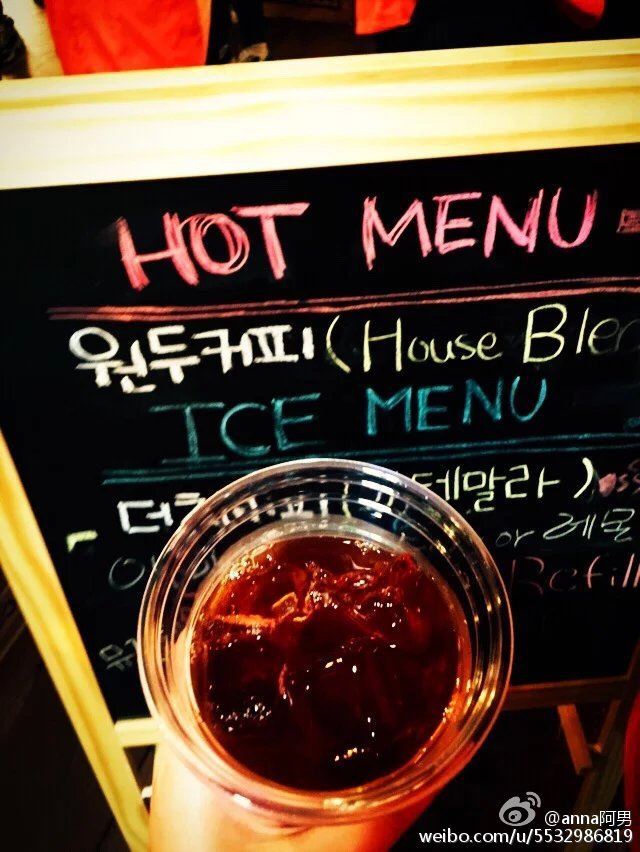 HOT MENU
원두커피 (House Ble
ICE MENU
테말라)
or 레몬
Refill
@anna阿男
weibo.com/u/5532986819